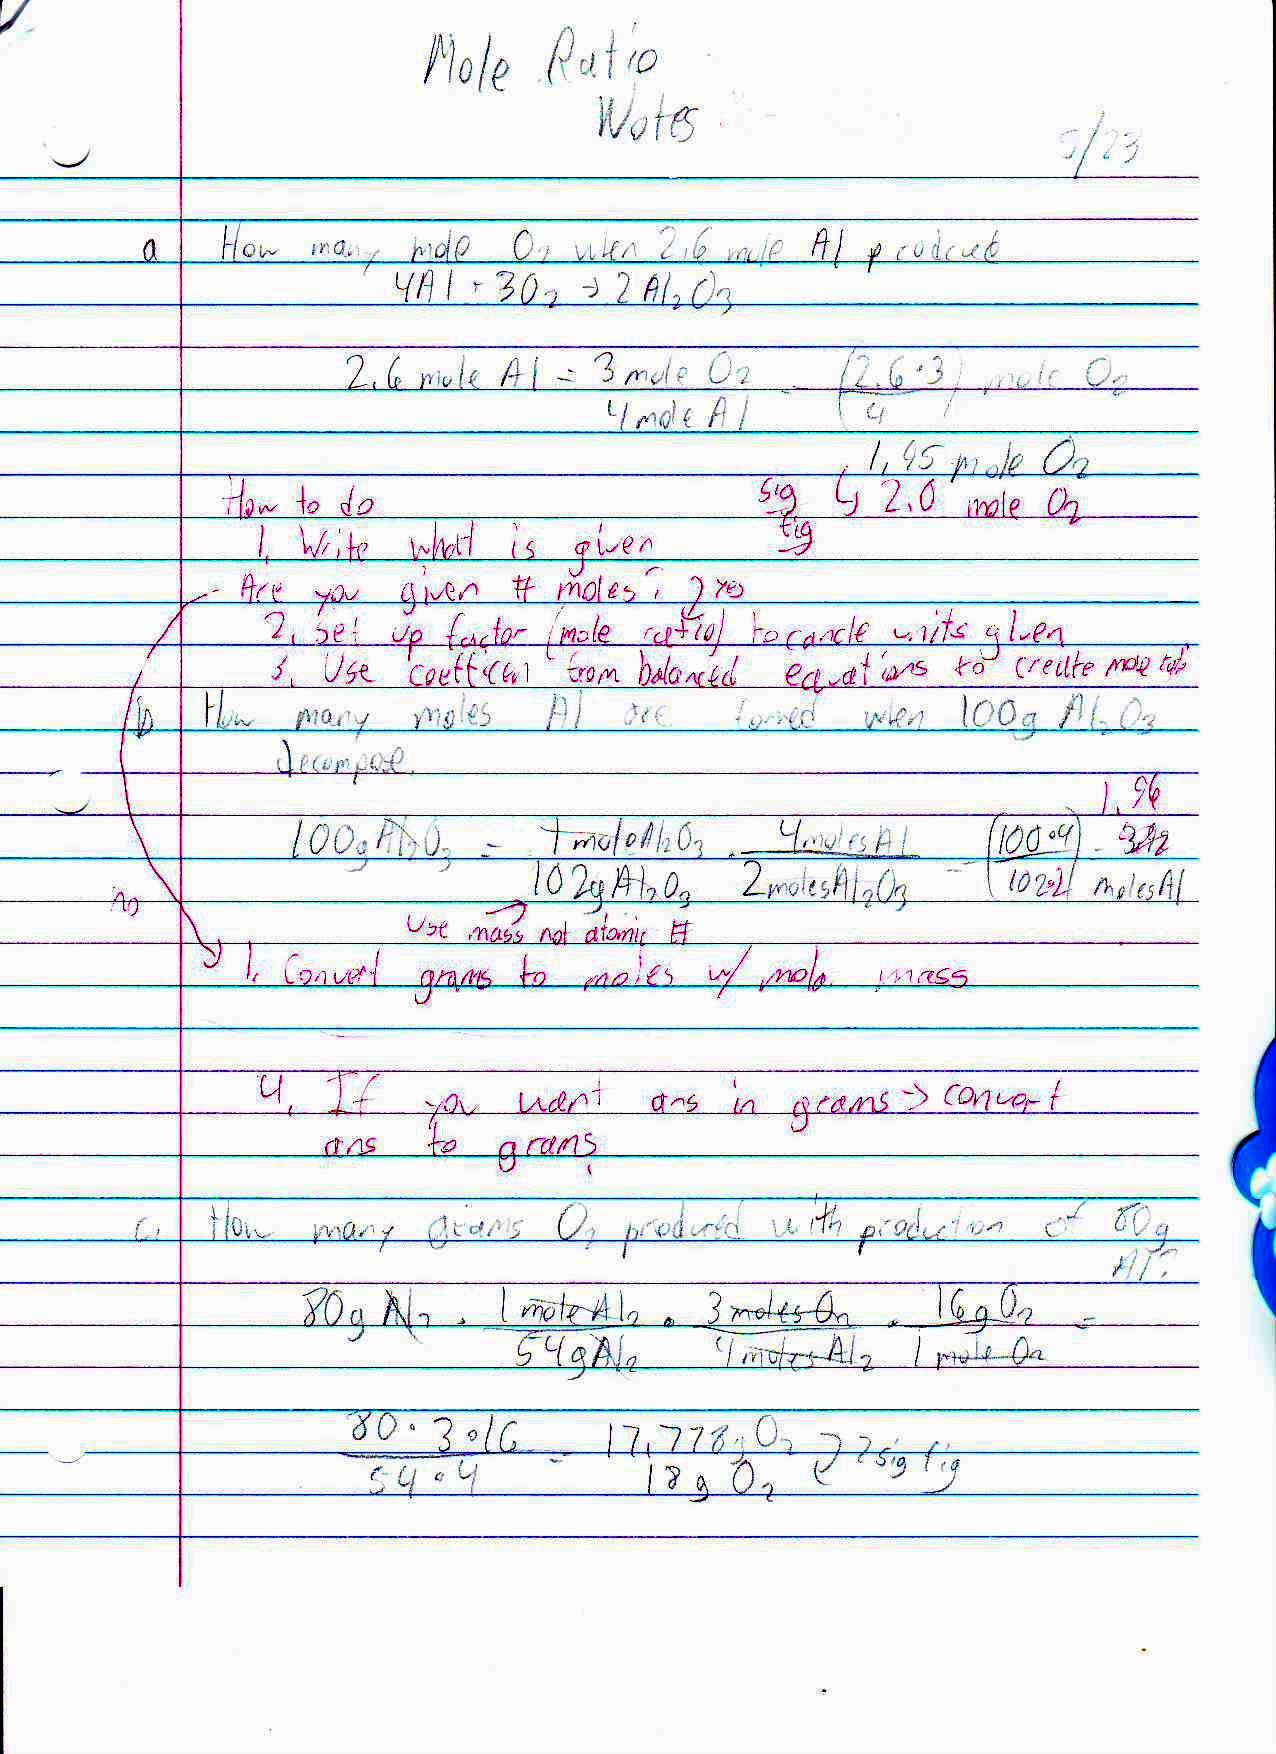 Mole Ratio
Notes
5/23
a How many mole O2 when 2.6 mole Al prodcued
4Al + 3O2 → 2Al2O3
2.6 mole Al = 3 mole O2 / 4 mole Al = (2.6·3 / 4) mole O2
1.95 mole O2
How to do sig fig ↳ 2.0 mole O2
1. Write what is given
- Are you given # moles? yes
2. Set up factor (mole ratio) to cancle units given
3. Use from balanced equations to create mole
b How many moles Al are formed when 100g Al2O3
decompose.
1.96
100g Al2O3 = 1 mole Al2O3 / 102g Al2O3 · 4 moles Al / 2 moles Al2O3 = (100·4 / 102·2) = moles Al
no
Use mass not atomic #
1. Convert grams to moles w/ mola mass
4. If you want ans in grams → convert
ans to grams
c. How many grams O2 produced with production of 80g
Al?
80g Al2 · 1 mole Al2 / 54g Al2 · 3 moles O2 / 4 moles Al2 · 16g O2 / 1 mole O2 =
80·3·16 / 54·4 = 17.778g O2
18g O2 2 sig fig